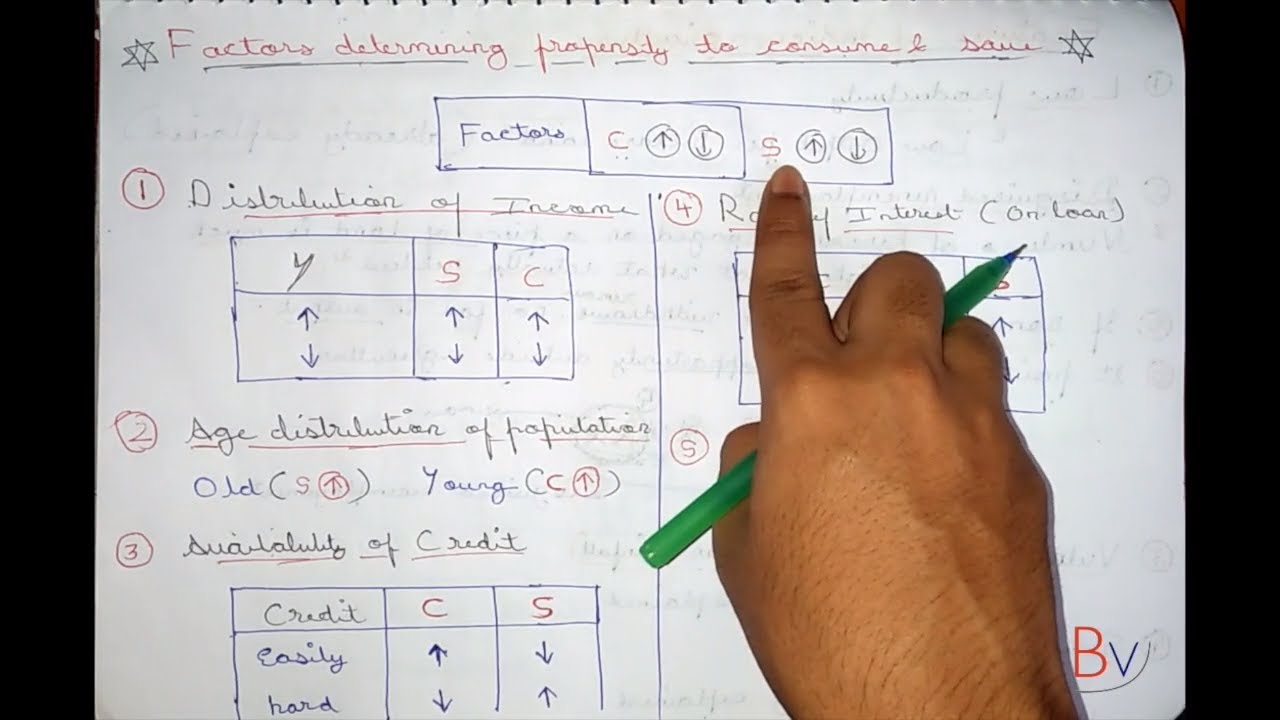 ☆ Factors determining propensity to consume & save ☆
Factors C ↑ ↓ S ↑ ↓
① Distribution of Income
Y S C
↑ ↑ ↑
↓ ↓ ↓
② Age distribution of population
Old (S ↑) Young (C ↑)
③ Availability of Credit
Credit C S
Easily ↑ ↓
hard ↓ ↑
④ Interest (On loan)
S
↑
↓
⑤
BV